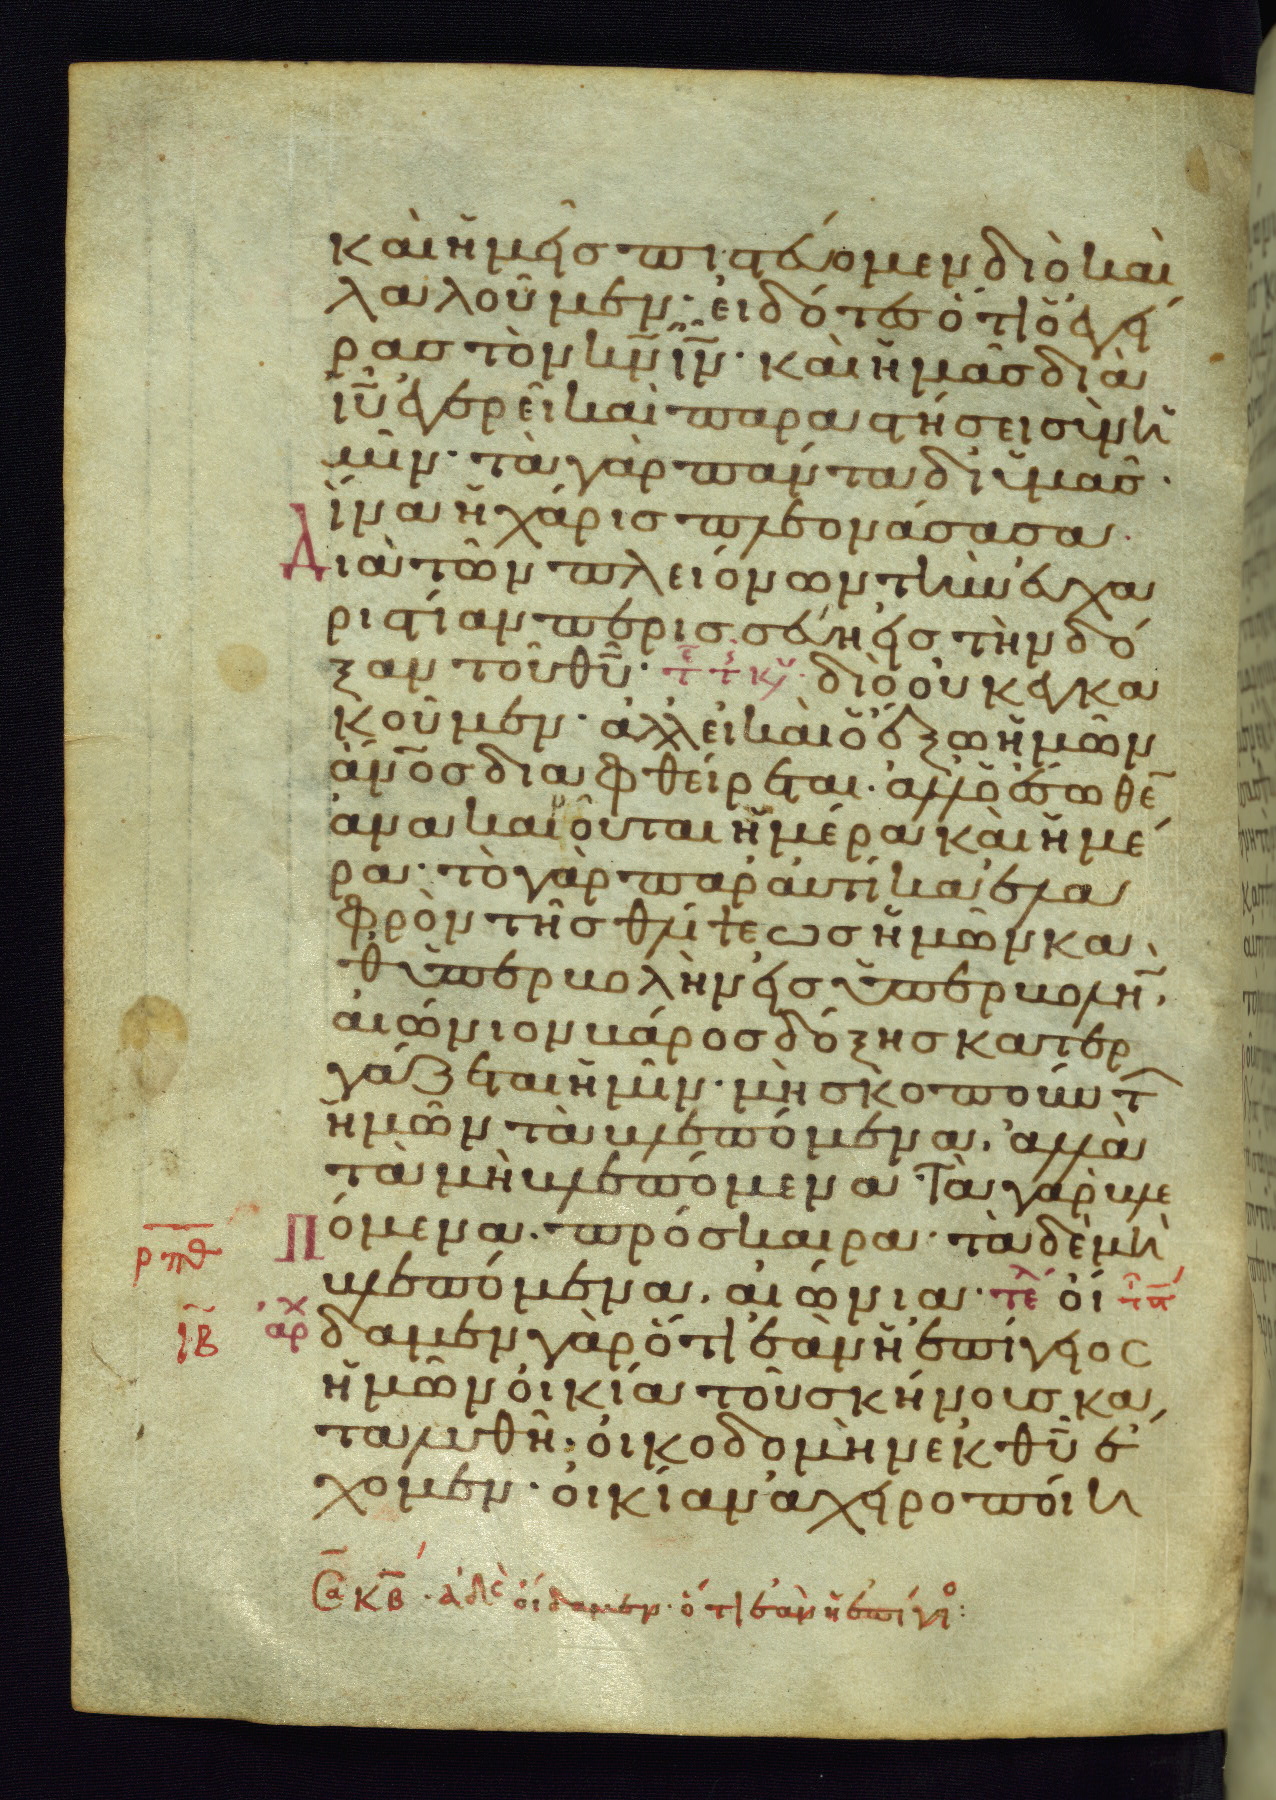 καὶ ἡμεῖς πιστεύομεν διὸ καὶ
λαλοῦμεν· εἰδότες ὅτι ὁ ἐγεί
ρας τὸν κν̅ ιν̅· καὶ ἡμᾶς διὰ
ιυ̅ ἐγερεῖ καὶ παραστήσει σὺν ὑ
μῖν· τὰ γὰρ πάντα δι ὑμᾶς·
ἵνα ἡ χάρις πλεονάσασα·
Διὰ τῶν πλειόνων τὴν εὐχα
ριστίαν περισσεύη εἰς τὴν δό
ξαν τοῦ θυ̅· διὸ οὐκ ἐκκα
κοῦμεν· ἀλλ εἰ καὶ ὁ ἔξω ἡμῶν
ἀν̅ος διαφθείρεται· ἀλλ ὁ ἔσωθε̅
ἀνακαινοῦται ἡμέρα καὶ ἡμέ
ρα· τὸ γὰρ παραυτίκα ἐλα
φρὸν τῆς θλίψεως ἡμῶν κα
θ ὑπερβολὴν εἰς ὑπερβολὴν
αἰώνιον βάρος δόξης κατερ
γάζεται ἡμῖν· μὴ σκοπούντ
ἡμῶν τὰ βλεπόμενα· ἀλλὰ
τὰ μὴ βλεπόμενα· Τὰ γὰρ βλε
Πόμενα· πρόσκαιρα· τὰ δὲ μὴ
ρπθ
βλεπόμενα· αἰώνια· τε̅ οἴ
ιβ
αρχ
δαμεν γὰρ ὅτι ἐὰν ἡ ἐπίγειος
ἡμῶν οἰκία τοῦ σκήνους κα
ταλυθῆ· οἰκοδομὴν ἐκ θυ̅ ἔ
χομεν· οἰκίαν ἀχειροποίη
Σα κβ· ἀδε οἴδαμεν· ὅτι ἐὰν ἡ ἐπίγιο: